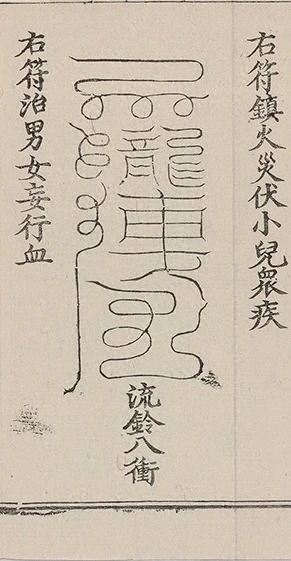 右符鎮火災伏小兒眾疾
龍車
流鈴八衝
右符治男女妄行血